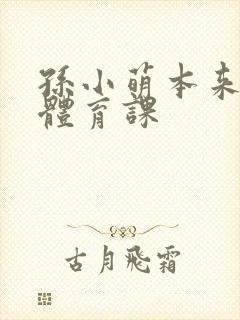 孫小萌本来
體育課
古月飛霜